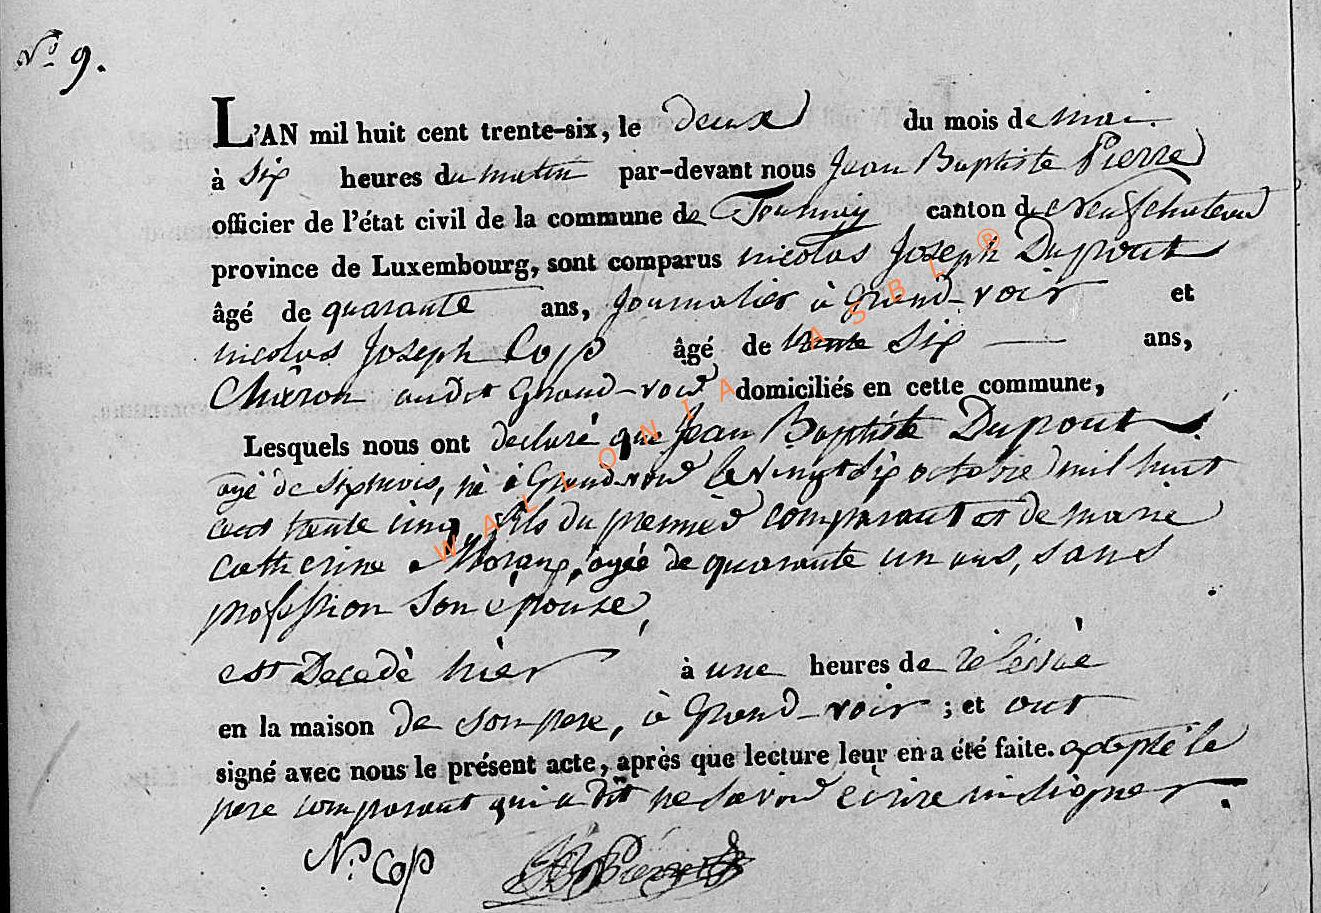 N.° 9.
L'AN mil huit cent trente-six, le deux du mois de mai.
à six heures du matin par-devant nous Jean Baptiste Pierre
officier de l'état civil de la commune de Tournay canton de Neufchateau
province de Luxembourg, sont comparus nicolas Joseph Dupont
âgé de quarante ans, journalier à Grand-voir et
nicolas Joseph Cop âgé de trente six ans,
Charon audit Grand-voir domiciliés en cette commune,
Lesquels nous ont declaré que Jean Baptiste Dupont
agé de six mois, né à Grand-voir le vingt six octobre mil huit
cent trente cinq, fils du premier comparant et de marie
catherine agée de quarante un ans, sans
profession son epouse,
est Decedé hier à une heures de relevée
en la maison de son pere, à Grand-voir ; et ont
signé avec nous le présent acte, après que lecture leur en a été faite. excepté le
pere comparant qui a dit ne savoir ecrire ni signer.
N. Cop JB Pierre
WALLONIA ASBL ®